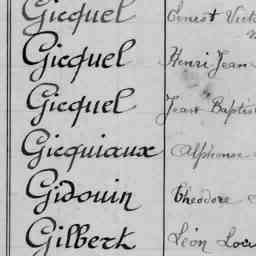 Gicquel Ernest Vict
Gicquel Henri Jean
Gicquel Jean Baptis
Gicquiaux Alphonse
Gidouin Théodore
Gilbert Léon Lou